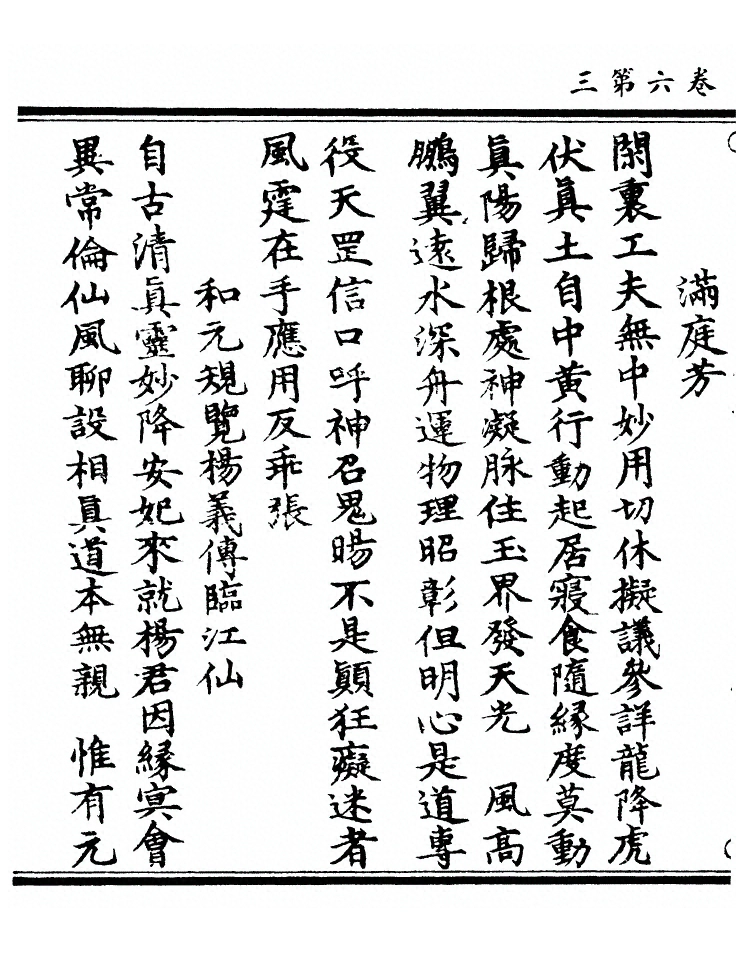 三第六卷
滿庭芳
閑裏工夫無中妙用切休擬議參詳龍降虎
伏眞土自中黄行動起居寢食隨緣度莫動
眞陽歸根處神凝脉住玉界發天光　風高
鵬翼遠水深舟運物理昭彰但明心是道專
役天罡信口呼神召鬼暘不是顚狂癡迷者
風霆在手應用反乖張
和元規覽楊羲傳臨江仙
自古清眞靈妙降安妃來就楊君因緣冥會
異常倫仙風聊設相眞道本無親　惟有元